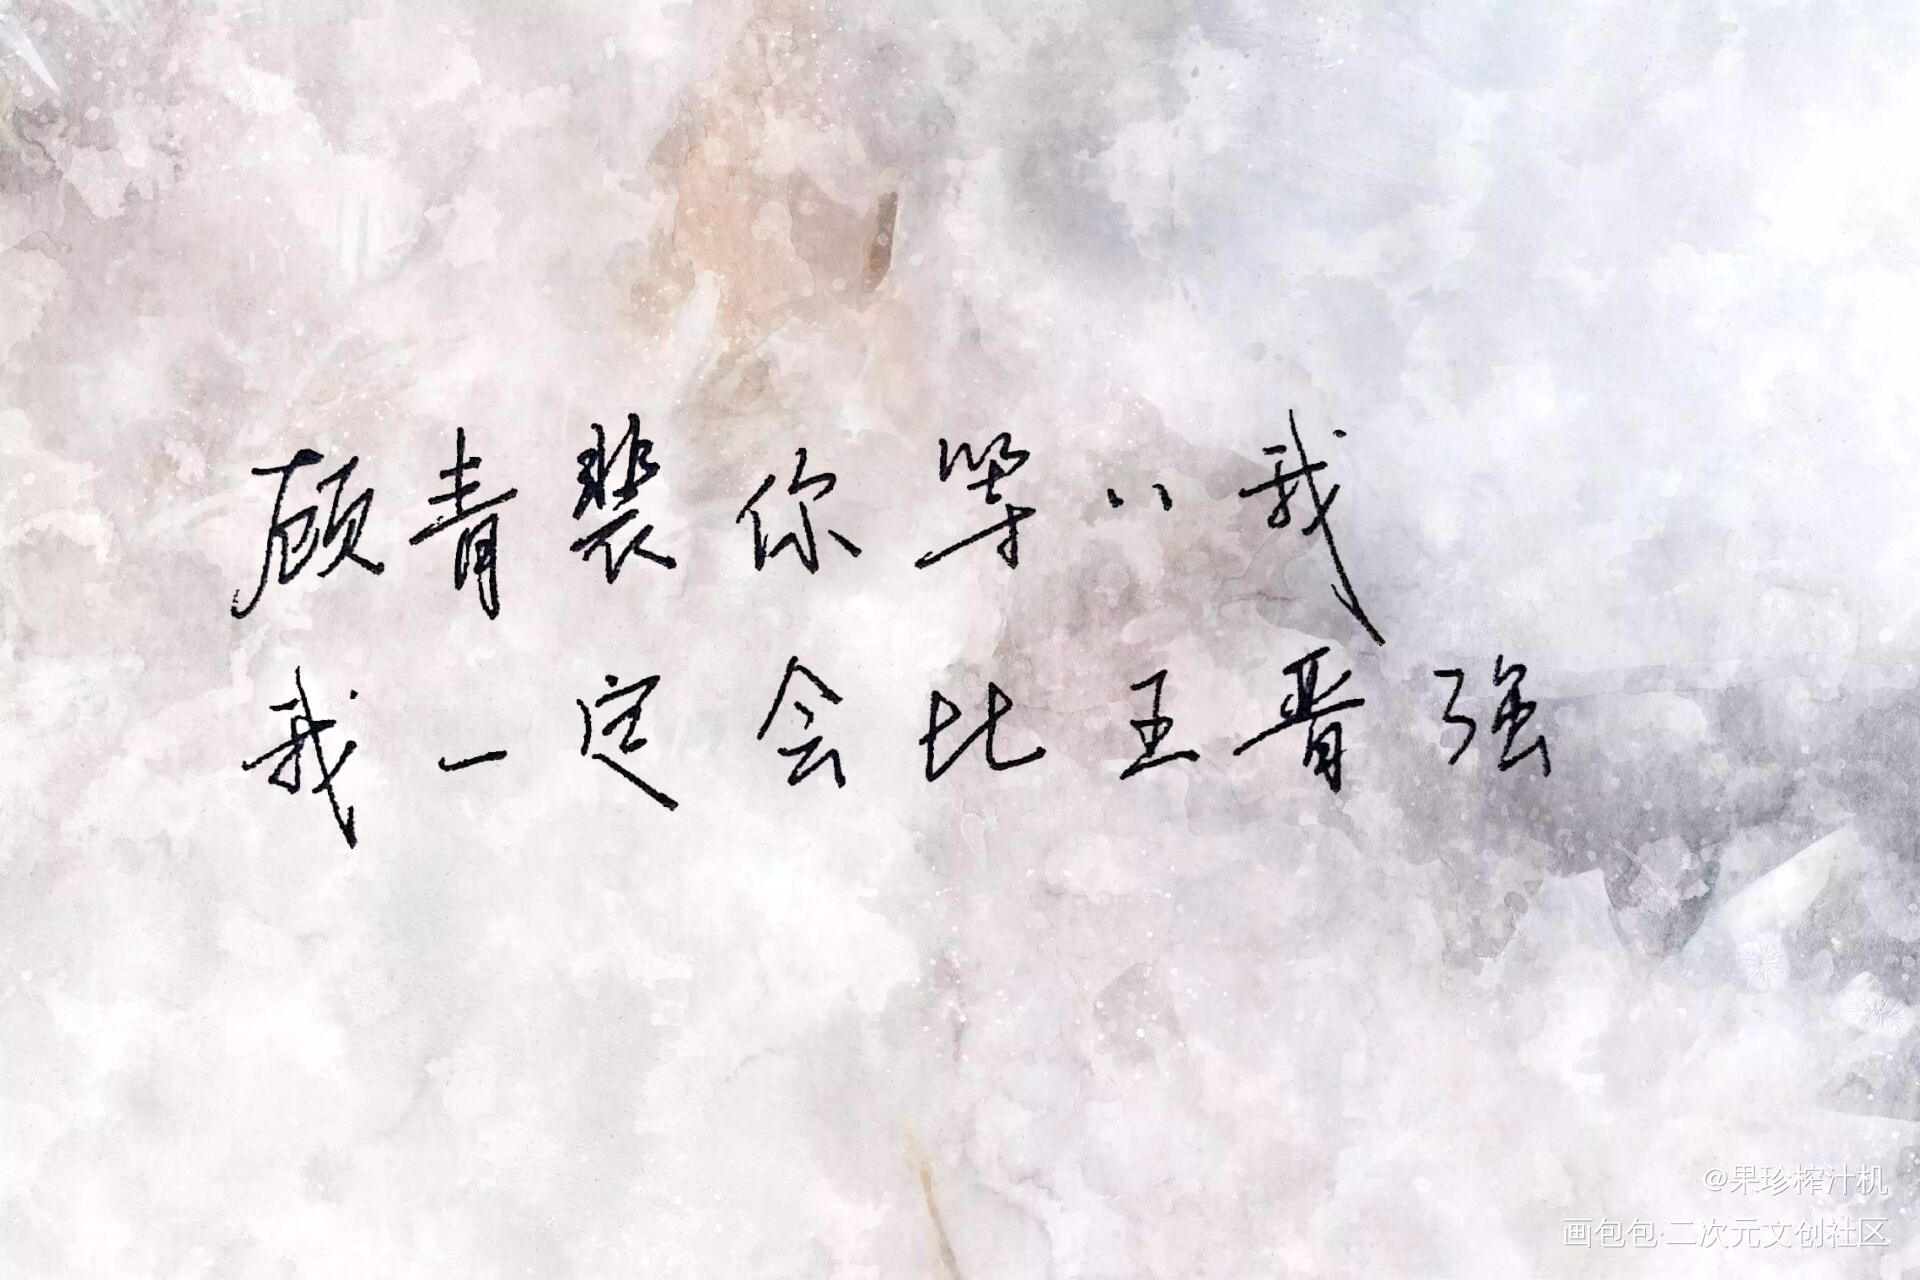 顾青裴你等、、我
我一定会比王晋强
@果珍榨汁机
画包包·二次元文创社区